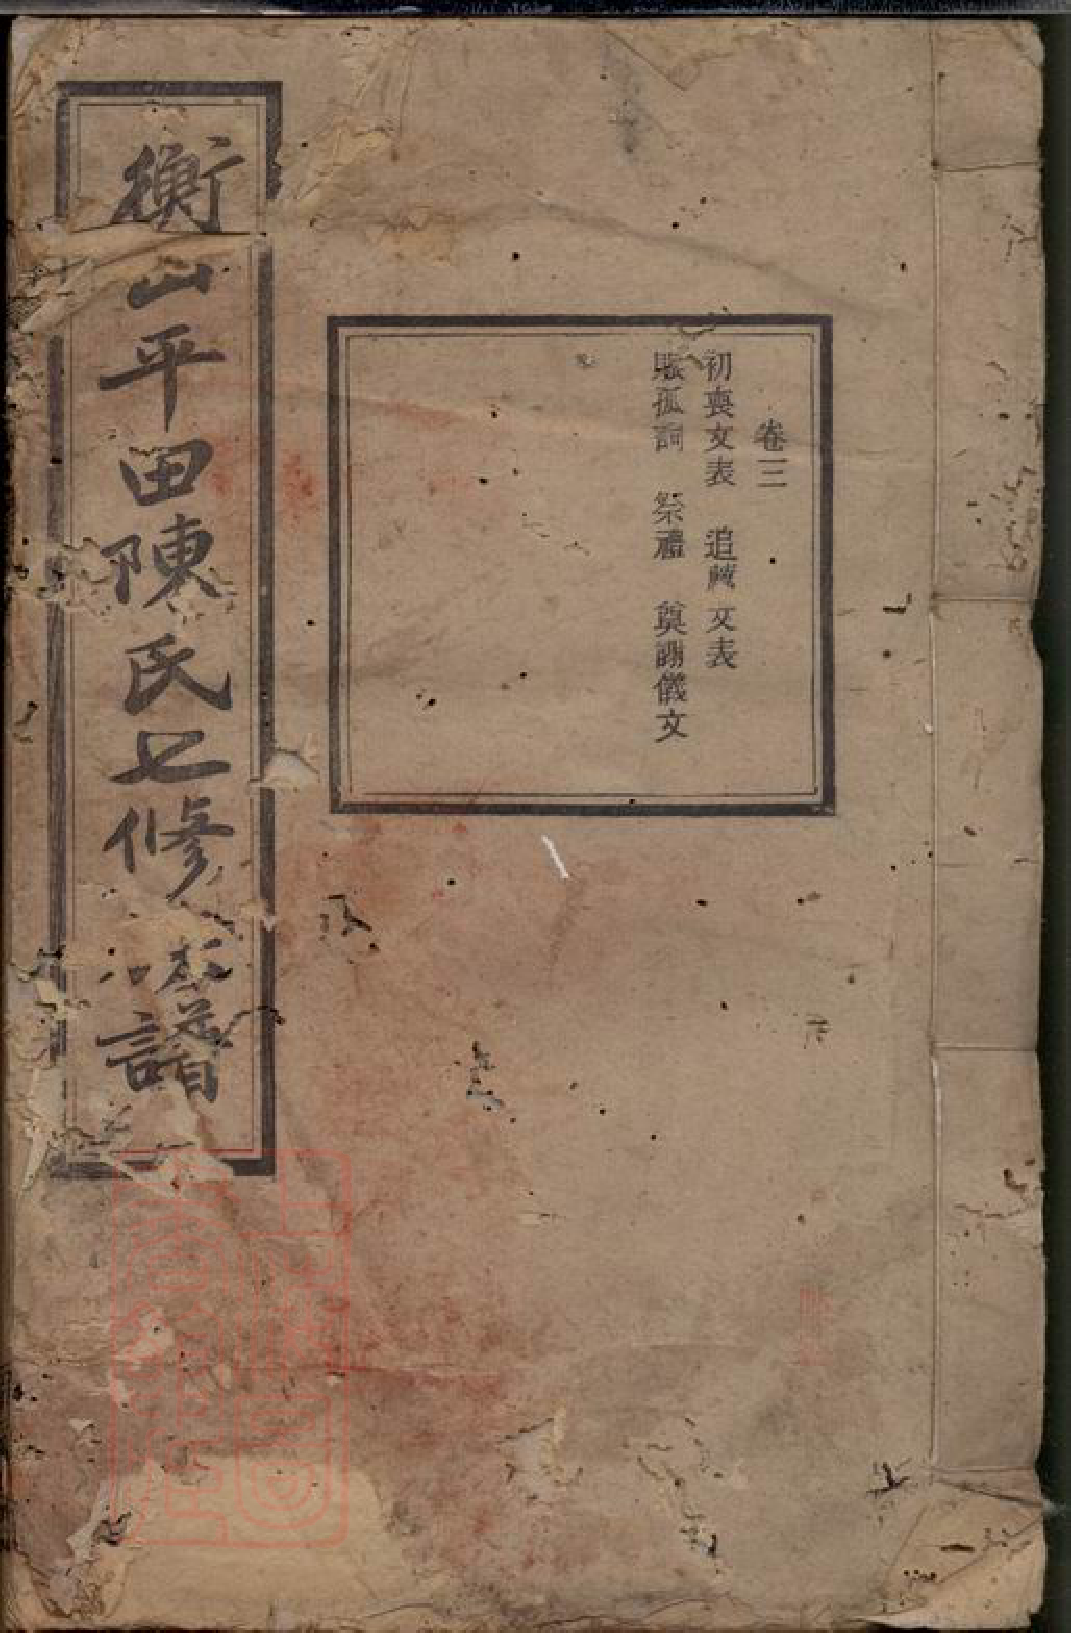 卷三
初喪文表　追薦文表
賑孤詞　祭禮　奠謝儀文
衡山平田陳氏七修族譜